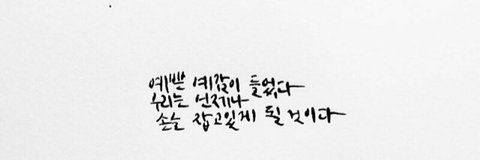 예쁜 예감이 들었다
우리는 언제나
손을 잡고있게 될 것이다